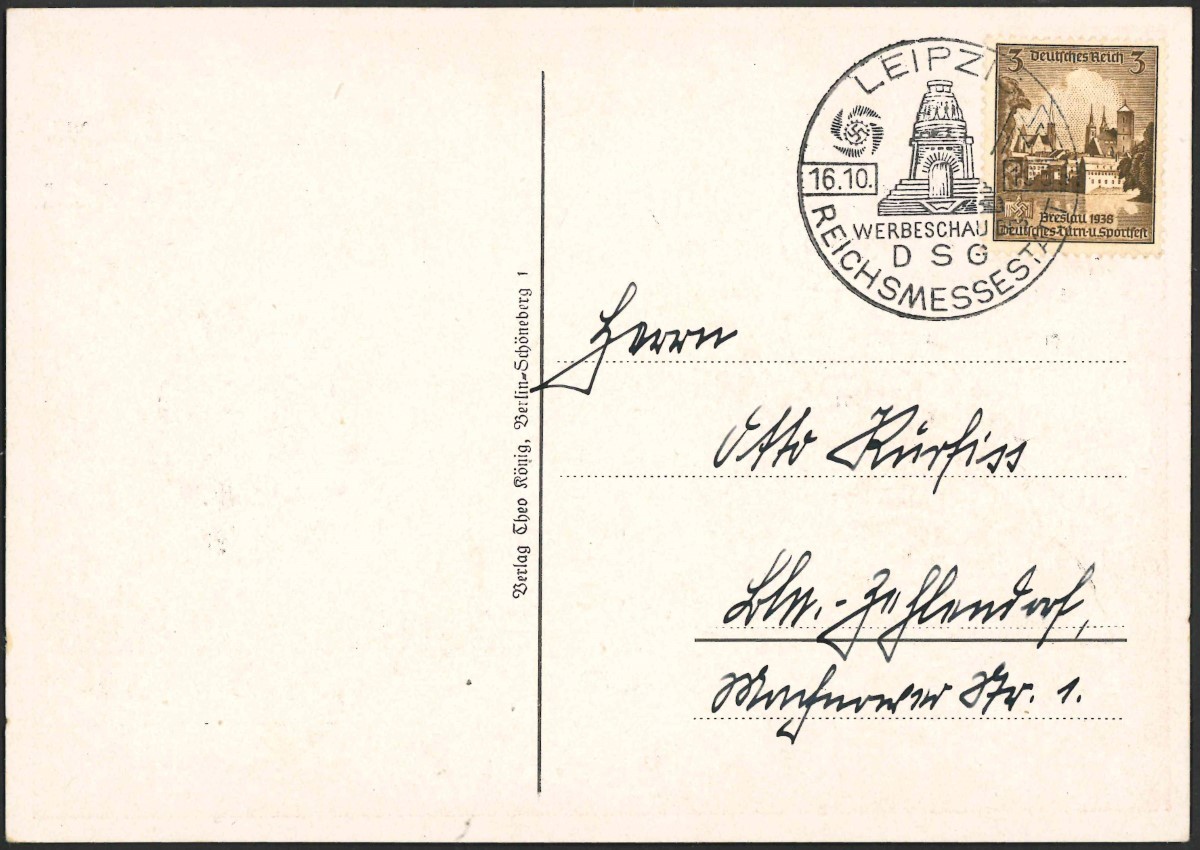 LEIPZI
16.10.
WERBESCHAU
DSG
REICHSMESSESTA
3 Deutsches Reich 3
Breslau 1938
Deutsches Turn-u. Sportfest
Verlag Theo König, Berlin-Schöneberg 1
Herrn
Otto Kurfiss
Bln.-Zehlendorf,
Machnower Str. 1.